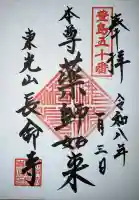 奉拝
令和八年
一月三日
豊島五十番
本尊
薬師如来
東光山
長命寺